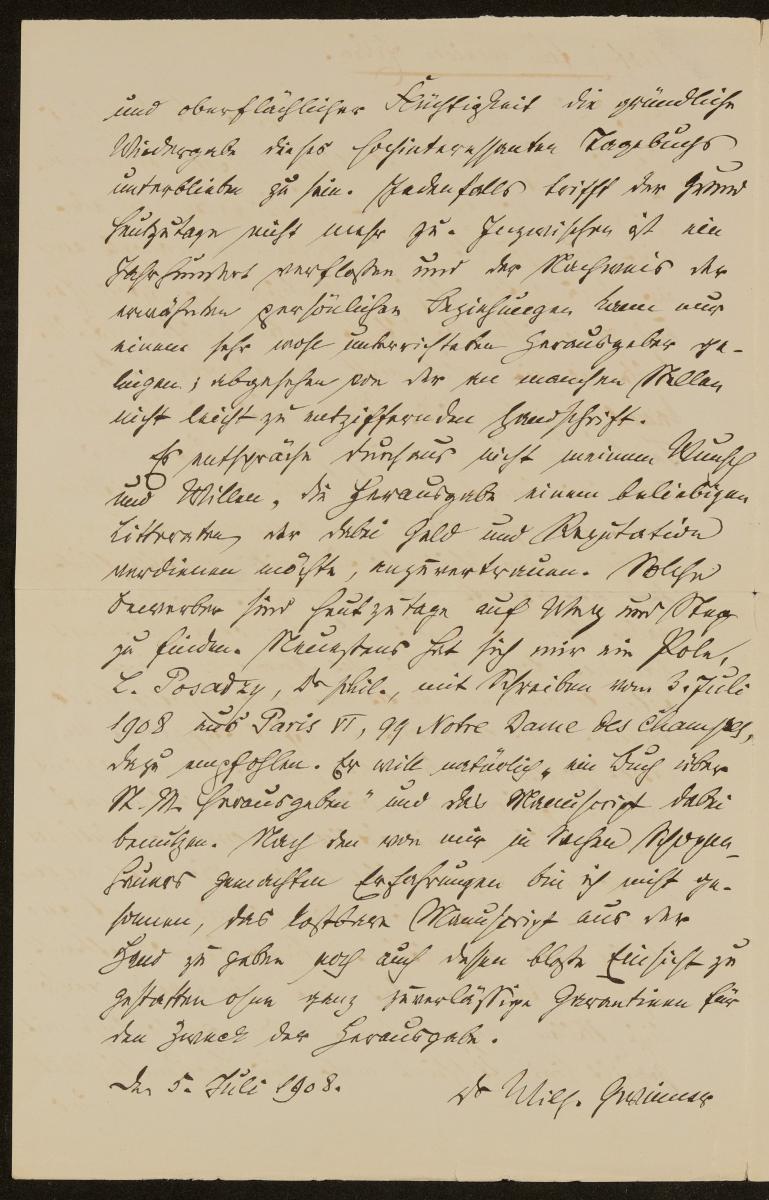 und oberflächlicher Flüchtigkeit die gründliche
Wiedergabe dieses hochinteressanten Tagebuchs
unterblieben zu sein. Jedenfalls trifft der Grund
heutzutage nicht mehr zu. Inzwischen ist ein
Jahrhundert verflossen und der Nachweis der
erwähnten persönlichen Beziehungen kann nur
einem sehr wohl unterrichteten Herausgeber ge-
lingen; abgesehen von der an manchen Stellen
nicht leicht zu entziffernden Handschrift.
Es entspräche durchaus nicht meinem Wunsch
und Willen, die Herausgabe einem beliebigen
Litteraten, der dabei Geld und Reputation
verdienen möchte, anzuvertrauen. Solche
Bewerber sind heutzutage auf Weg und Steg
zu finden. Neuestens hat sich mir ein Pole,
L. Posadzy, Dr phil., mit Schreiben vom 3. Juli
1908 aus Paris VI, 99 Notre Dame des Champs,
dazu empfohlen. Er will natürlich „ein Buch über
St. M. herausgeben" und das Manuscript dabei
benutzen. Nach den von mir in Sachen Schopen-
hauers gemachten Erfahrungen bin ich nicht ge-
sonnen, das kostbare Manuscript aus der
Hand zu geben noch auch dessen bloße Einsicht zu
gestatten ohne ganz zuverlässige Garantieen für
den Zweck der Herausgabe.
Den 5. Juli 1908.
Dr Wilh. Gwinner